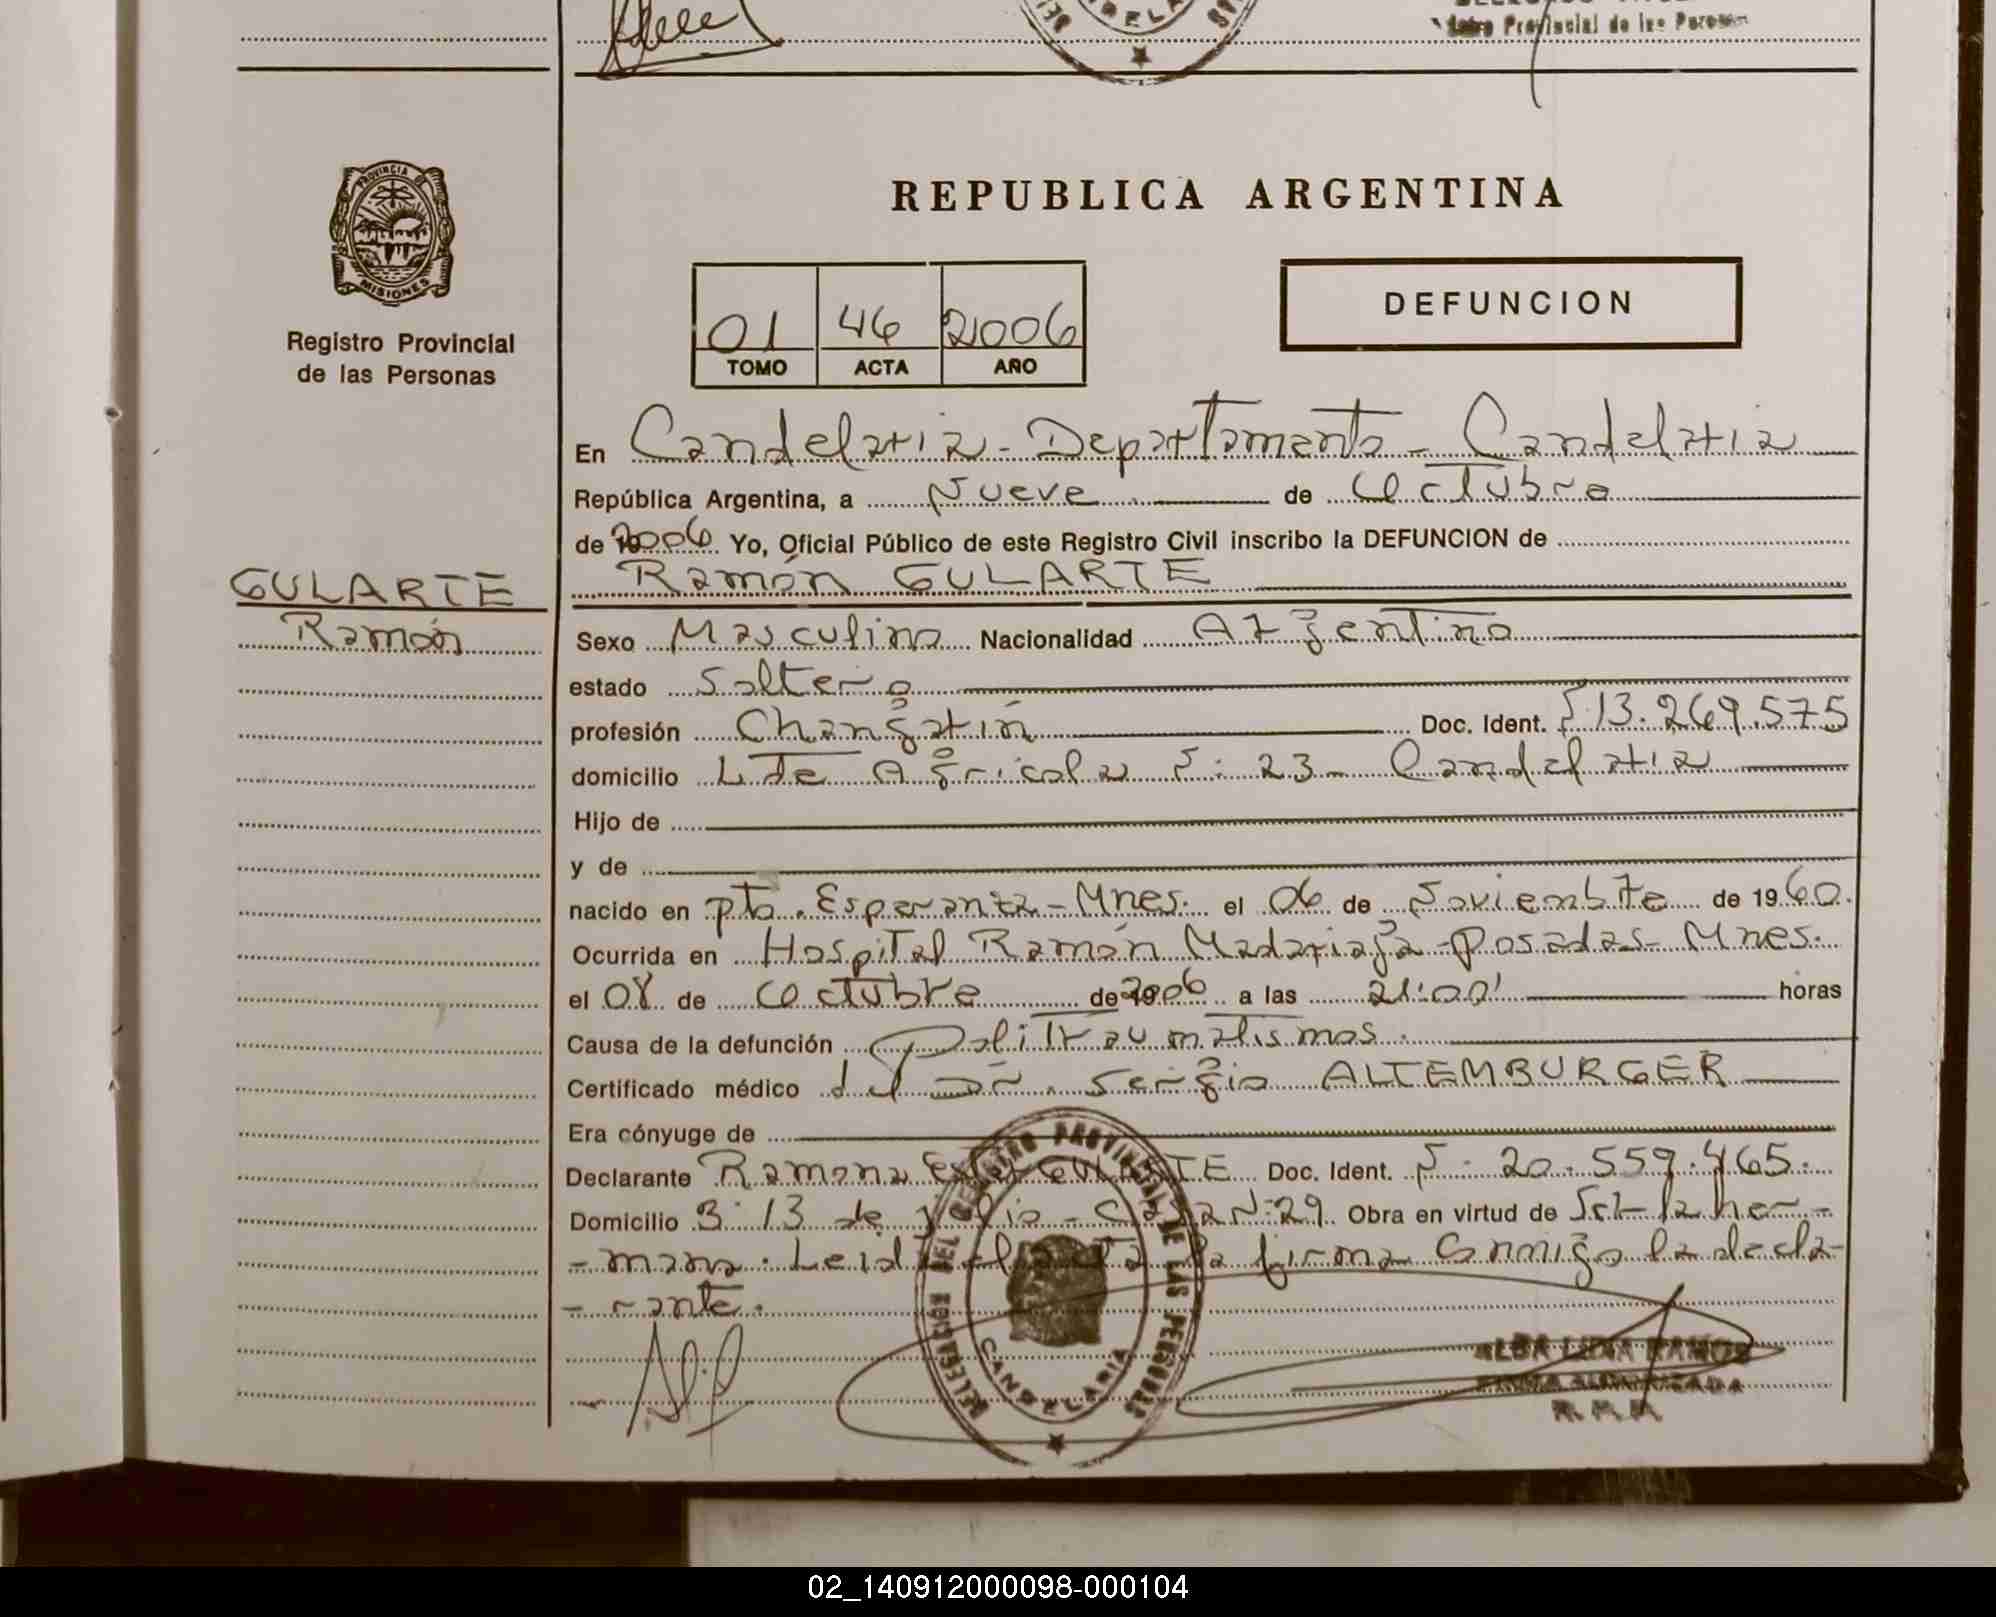 Registro Provincial de las Personas
PROVINCIA DE
MISIONES
Registro Provincial
de las Personas
REPUBLICA ARGENTINA
01 46 2006
TOMO ACTA AÑO
DEFUNCION
En Candelaria - Departamento - Candelaria
República Argentina, a Nueve de Octubre
de 2006 Yo, Oficial Público de este Registro Civil inscribo la DEFUNCION de
Ramón GULARTE
GULARTE
Ramón
Sexo Masculino Nacionalidad Argentino
estado Soltero
profesión Changarín Doc. Ident. N: 13.269.575
domicilio Lote Agricola N: 23 - Candelaria
Hijo de
y de
nacido en pto. Esperanza - Mnes. el 06 de Noviembre de 1960.
Ocurrida en Hospital Ramón Madariaga - Posadas - Mnes.
el 08 de Octubre de 2006 a las 21:00' horas
Causa de la defunción Politraumatismos.
Certificado médico del Dr. Sergio ALTEMBURGER
Era cónyuge de
Declarante Ramona GULARTE Doc. Ident. N: 20.559.465.
Domicilio B: 13 de Julio - CASA N: 29. Obra en virtud de Ser la her-
- mana. Leida el acta la firma Conmigo la decla-
- rante.
DELEGACION DEL REGISTRO PROVINCIAL DE LAS PERSONAS
CANDELARIA
ALBA LIDIA RAMOS
FIRMA AUTORIZADA
R. P. P.
02_140912000098-000104